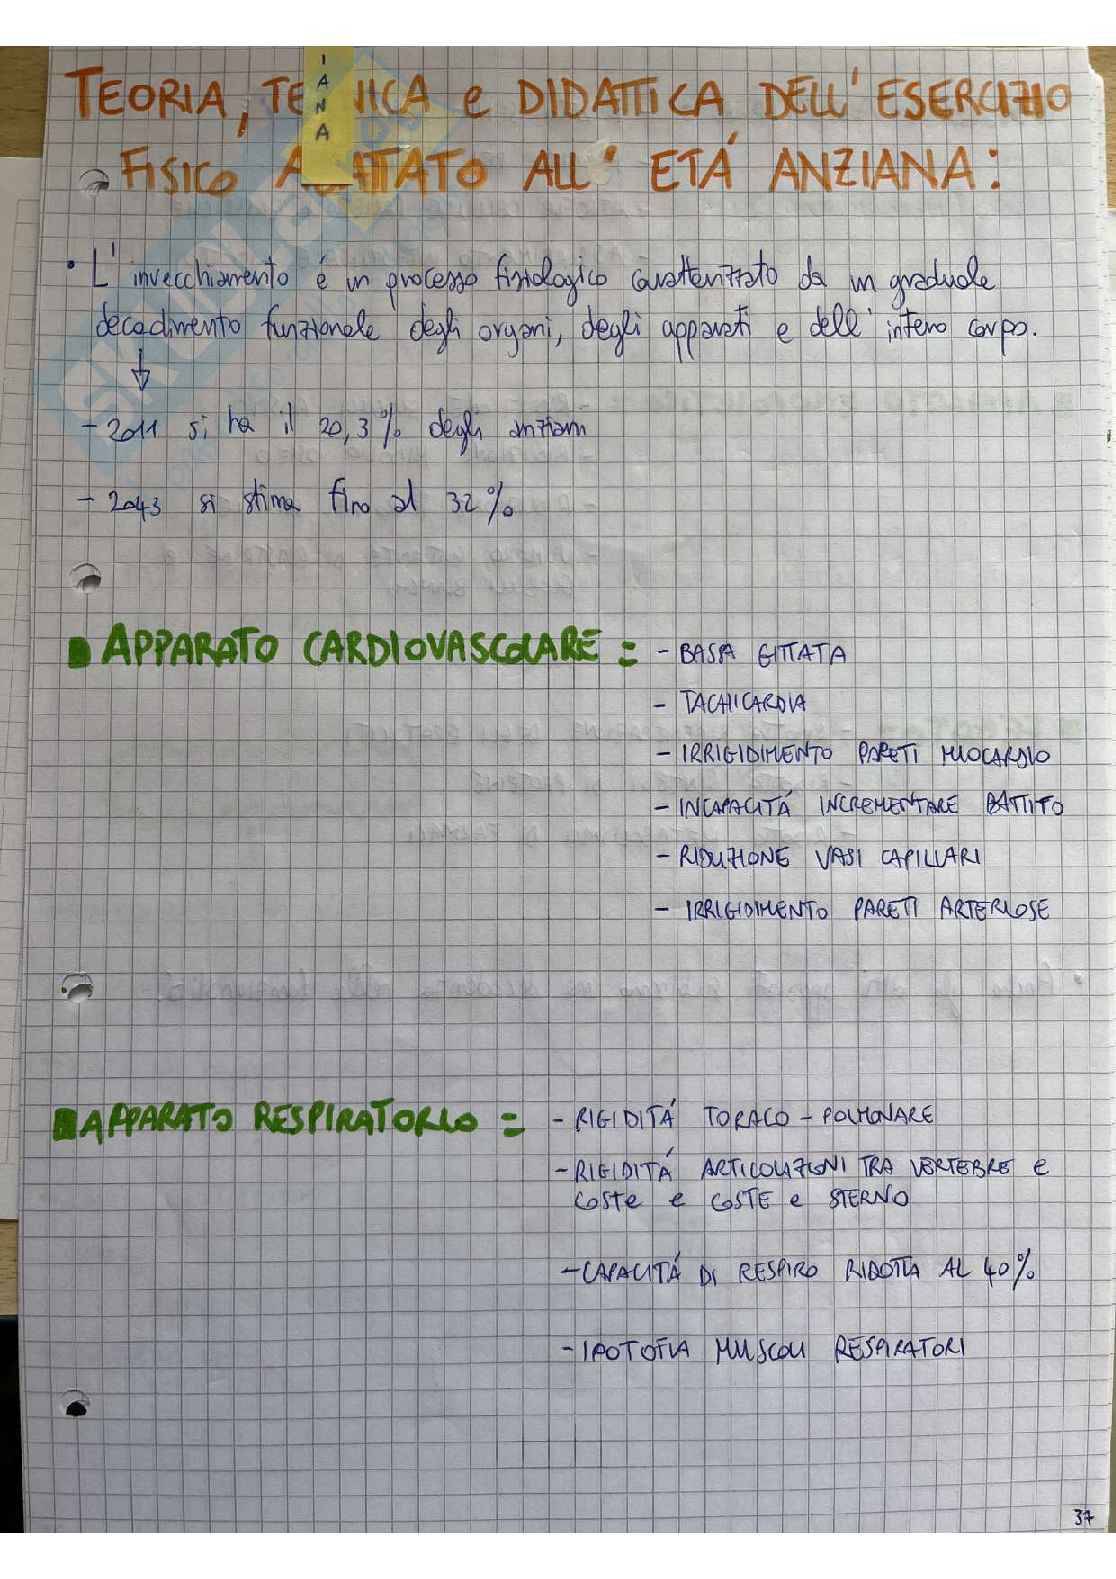 I
A
N
A
TEORIA, TECNICA e DIDATTICA DELL' ESERCIZIO
FISICO ADATTATO ALL' ETÁ ANZIANA:
• L' invecchiamento é un processo fisiologico caratterizzato da un graduale
decadimento funzionale degli organi, degli apparati e dell' intero corpo.
- 2011 si ha il 20,3% degli anziani
- 2043 si stima fino al 32%
APPARATO CARDIOVASCOLARE = - BASSA GITTATA
- TACHICARDIA
- IRRIGIDIMENTO PARETI MIOCARDIO
- INCAPACITÁ INCREMENTARE BATTITO
- RIDUZIONE VASI CAPILLARI
- IRRIGIDIMENTO PARETI ARTERIOSE
APPARATO RESPIRATORIO = - RIGIDITÁ TORACO - POLMONARE
- RIGIDITÁ ARTICOLAZIONI TRA VERTEBRE e
COSTE e COSTE e STERNO
- CAPACITÁ DI RESPIRO RIDOTTA AL 40%
- IPOTOFIA MUSCOLI RESPIRATORI
37